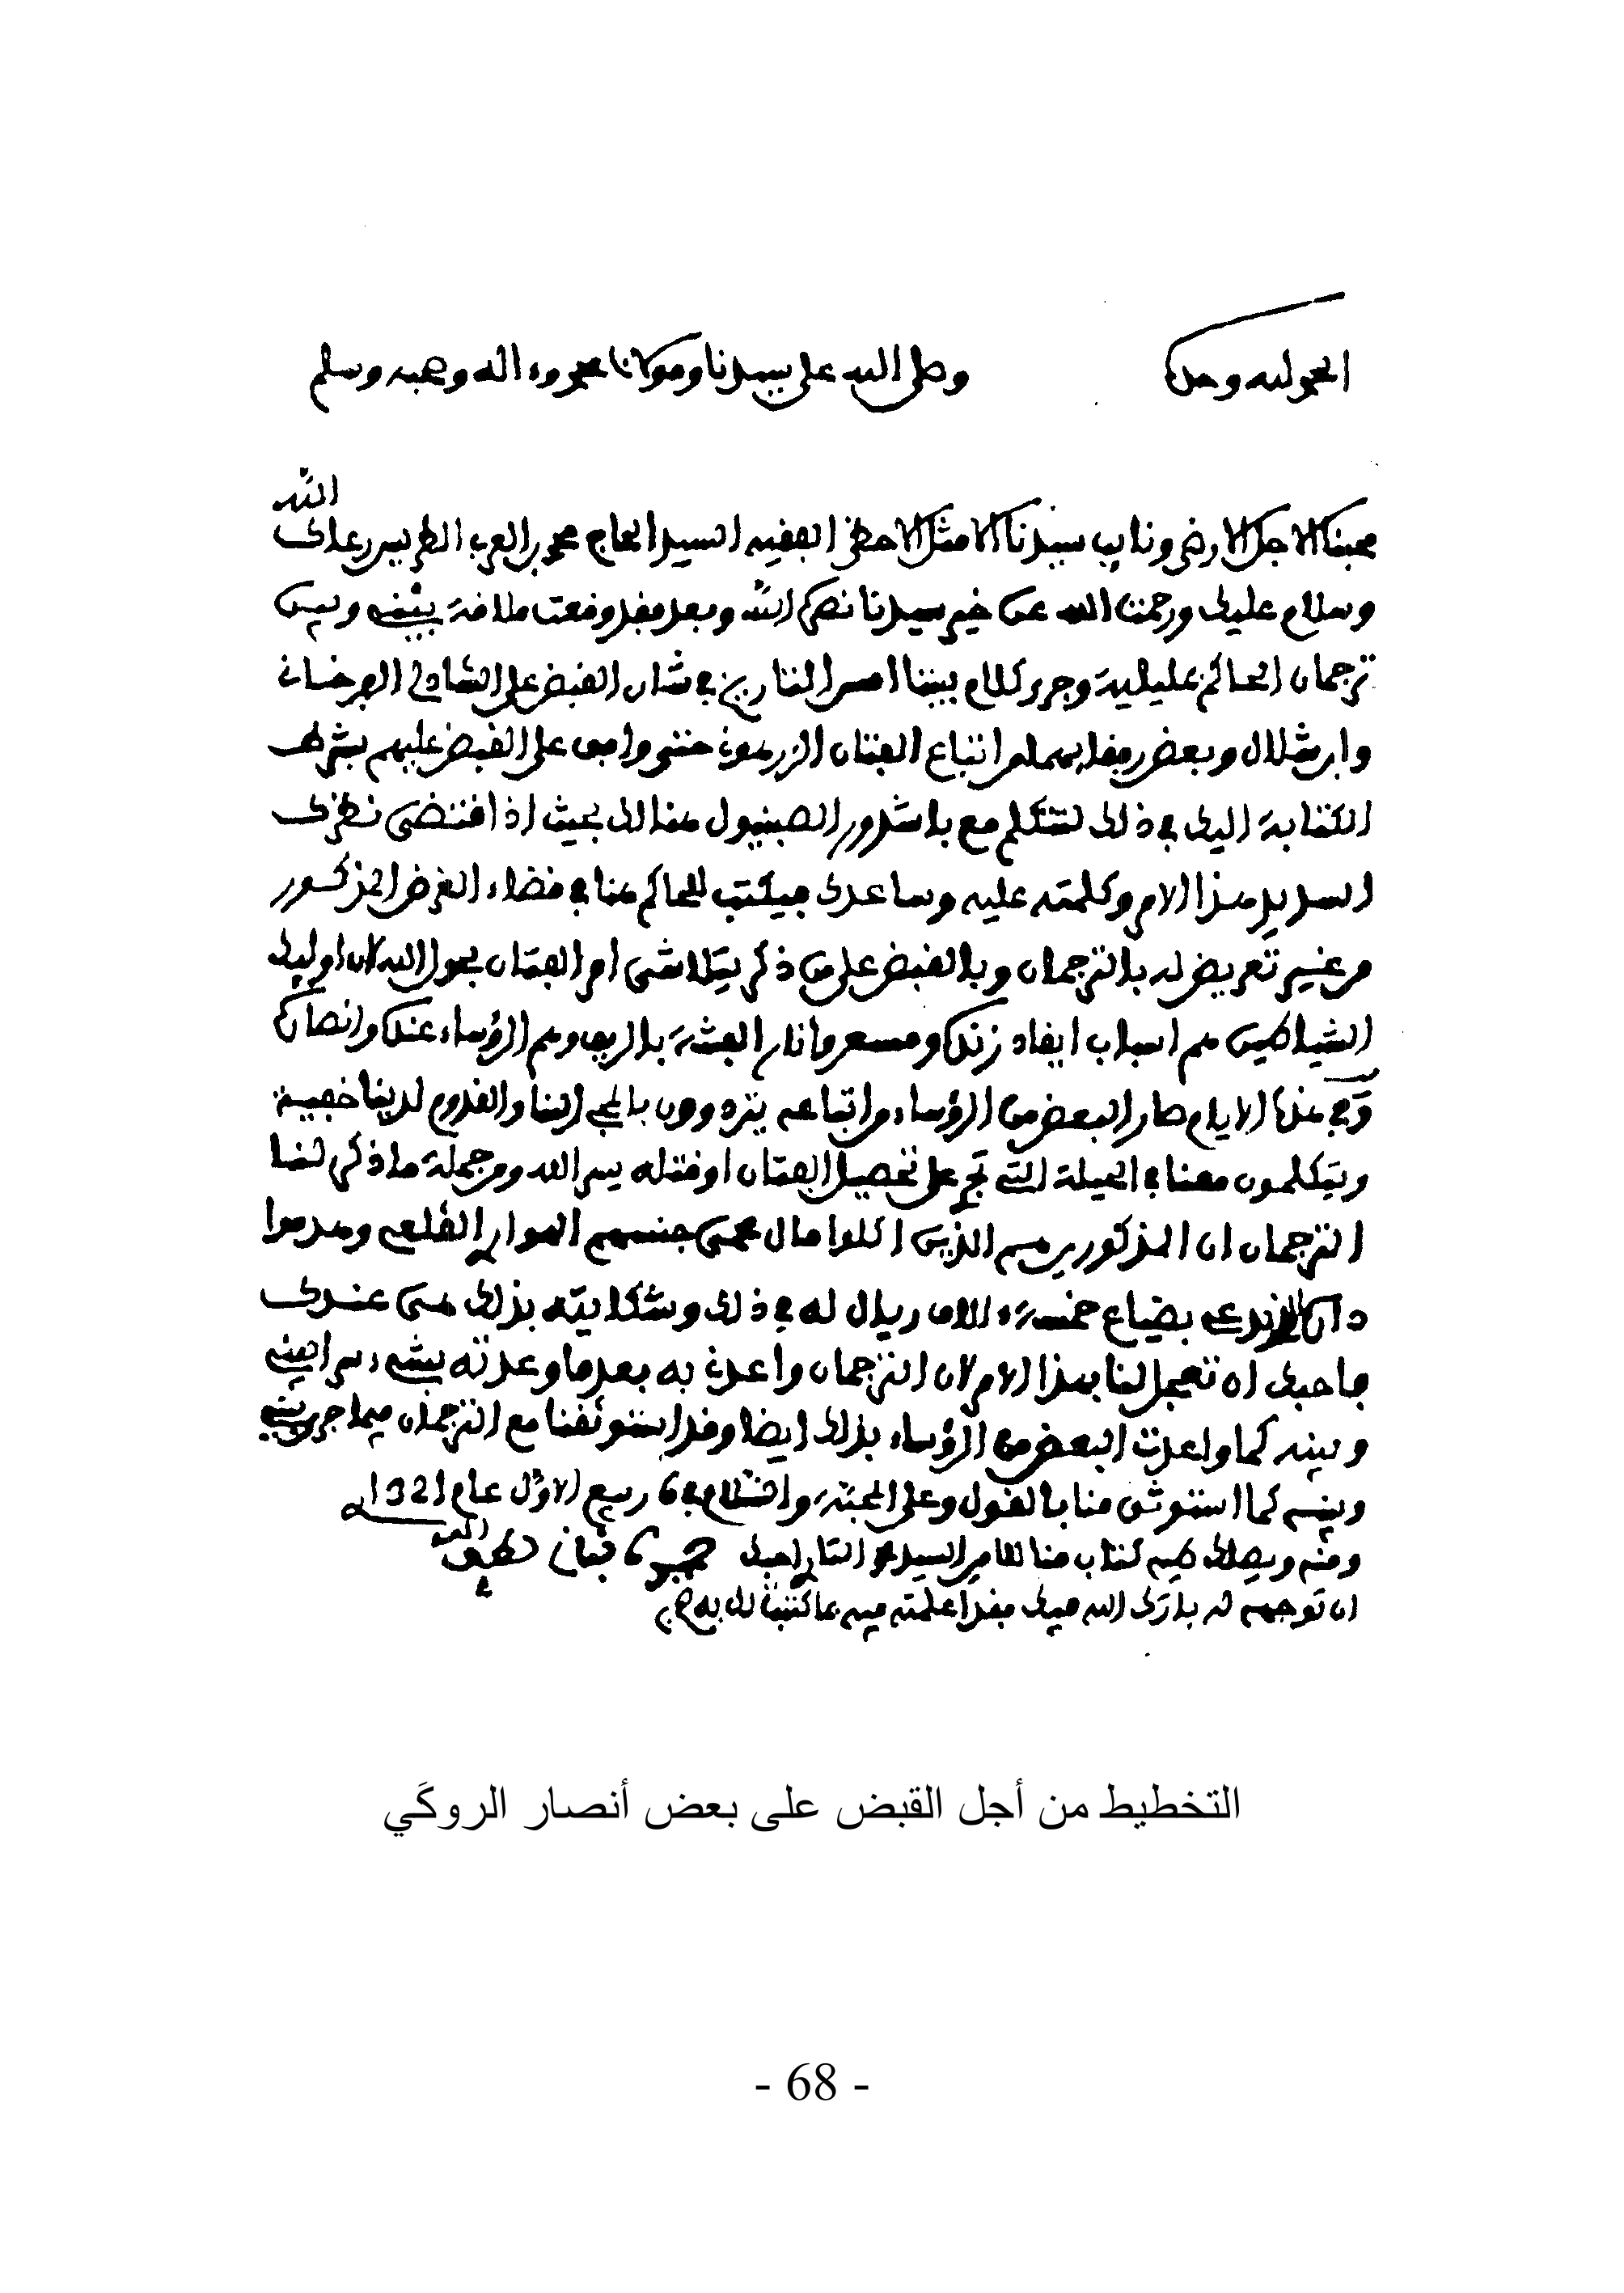 الحمد لله وحده
وصلى الله على سيدنا ومولانا محمد وءاله وصحبه وسلم
محبنا الاجل الارضى ونايب سيدنا الامثل الاحظى الفقيه السيد الحاج محمد بن العربي الطريس رعاك الله
وسلام عليك ورحمت الله عن خير سيدنا نصره الله وبعد فقد وقعت ملاقة بيننا وبين
ترجمان الحاكم بمليلية وجرى كلام بيننا امس التاريخ في شان القبض على الشاذلي
وابن شلال وبعض رفقايهما من اتباع الفتان الزرهوني حتى وافق على القبض عليهم بشرط
الكتابة اليك في ذلك لتتكلم مع باشدور الصبنيول هنالك بحيث اذا اقتضى نظرك
السديد هذا الامر وكلمته عليه وساعدك فيكتب للحاكم هنا في قضاء الغرض المذكور
من غير تعريض له بالترجمان وبالقبض على من ذكر يتلاشى امر الفتان بحول الله لان اوليك
الشياطين هم اسباب ايقاد زنده ومسعروا نار الفتنة بالريف وهم الرؤساء عنده وانصاره
وفي هذه الايام صار البعض من الرؤساء من اتباعه يترددون بالمجيء الينا والقدوم لدينا خفية
ويتكلمون معنا في الحيلة التي تجري على تحصيل الفتان او قتله يسر الله ومن جملة ما ذكر لنا
الترجمان ان المذكورين هم الذين اكلوا مال محمي جنسهم القلعي وهدموا
داره بضياع خمسة ءالاف ريال له في ذلك وشكايته بذلك هي عندك
فاحبك ان تعجل لنا بهذا الامر لان الترجمان واعدني به بعدما وعدته بشيء سرا بيني
وبينه كما واعدت البعض من الرؤساء بذلك ايضا وقد استوثقنا مع الترجمان فيما جرى بيننا
وبينه كما استوثق منا بالقول وعلى المحبة والسلام في 6 ربيع الاول عام 1321
ومنه ويصلك طيه كتاب هنا للامين السيد التازي احبك
ان توجهه له بارك الله فيك فقد اعلمته فيه بما كتبنا لك به صح
التخطيط من أجل القبض على بعض أنصار الروكَي
- 68 -